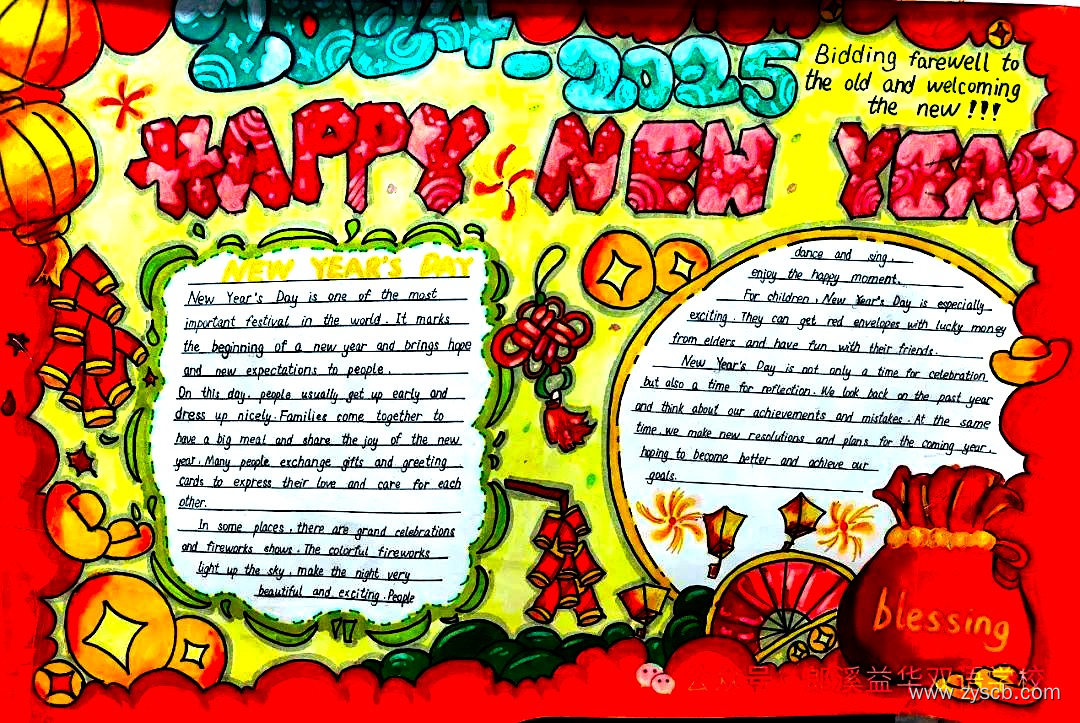 2024-2025
Bidding farewell to
the old and welcoming
the new!!!
HAPPY NEW YEAR
NEW YEAR'S DAY
New Year's Day is one of the most
important festival in the world. It marks
the beginning of a new year and brings hope
and new expectations to people.
On this day, people usually get up early and
dress up nicely. Families come together to
have a big meal and share the joy of the new
year. Many people exchange gifts and greeting
cards to express their love and care for each
other.
In some places, there are grand celebrations
and fireworks shows. The colorful fireworks
light up the sky, make the night very
beautiful and exciting. People
dance and sing,
enjoy the happy moment.
For children, New Year's Day is especially
exciting. They can get red envelopes with lucky money
from elders and have fun with their friends.
New Year's Day is not only a time for celebration
but also a time for reflection. We look back on the past year
and think about our achievements and mistakes. At the same
time, we make new resolutions and plans for the coming year,
hoping to become better and achieve our
goals.
blessing
溪益华双语学校
www.zyscb.com